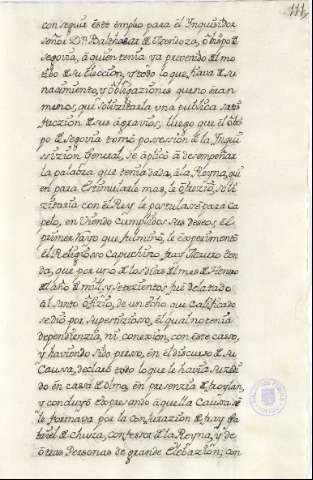 111
conseguir este empleo para el Inquisidor
Señor Dn. Balthasar de Mendoza, Obispo de
Segovia, á quien tenia ya prevenido el mo
tibo de su eleccion, y todo lo que havia de su
nacimiento, y obligaciones que no eran
menos, que solizitarla una publica satis
faczion de sus agravios; luego que el Obis
po de Segovia tomó possession de la Inqui
sizion General, se aplicó á desempeñar
la palabra que tenia dada á la Reyna, qui
en para estimularle mas, le ofrezió, soli
zitaria con el Rey le postulase para ca
pelo, en viendo cumplidos sus deseos, el
primer rayo que fulminó, le experimentó
el Religioso Capuchino, fray Mauro ten
da, que por uno de los dias del mes de Henero
del año de mill, y setezientos fué delatado
al santo Ofizio, de un echo que calificado
se dió por superstizioso, el qual no tenia
dependienzia, ni conexion, con este casso,
y haviendo sido presso, en el discurso de su
Caussa, declaró todo lo que le havia suzedi
do en cassa de Olmo, en presenzia de froylan,
y concluyó expresando aquella Caussa se
le formava por la conjurazion de fray Ga
briel de chiusa, confesor de la Reyna, y de
otras Personas de grande elebazion; con